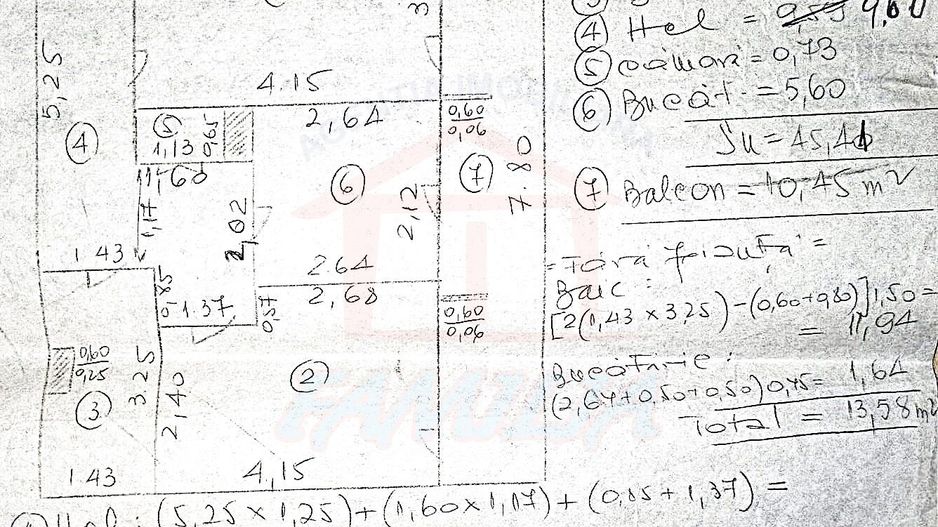 ④ Hol = 9,60
⑤ cămară = 0,73
⑥ Bucăt. = 5,60
Su = 45,41
⑦ Balcon = 10,45 m²
Baie:
[2(1,43 × 3,25) - (0,60+0,80)] 1,50 =
= 11,94
Bucătărie:
(2,64+0,50+0,50) 0,45 = 1,64
Total = 13,58 m²
5,25
4,15
④
⑤
1,13
0,65
2,64
0,60
0,06
1,60
⑥
⑦
7.80
1,17
2,02
2,12
1.43
2.64
2,68
1.37
0,57
0,60
0,06
0,60
0,25
3.25
2,40
②
③
1.43
4,15
FAMILIA
Hol: (5,25 × 1,25) + (1,60 × 1,17) + (0,85 + 1,37) =